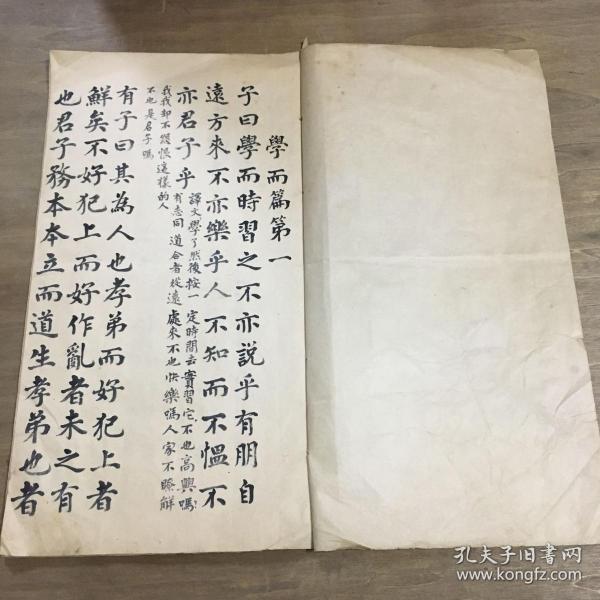 學而篇第一
子曰學而時習之不亦說乎有朋自
遠方來不亦樂乎人不知而不慍不
亦君子乎
譯文學了然後按一定時間去實習它不也高興嗎
有志同道合者從遠處來不也快樂嗎人家不瞭解
我我却不怨恨這樣的人
不也是君子嗎
有子曰其為人也孝弟而好犯上者
鮮矣不好犯上而好作亂者未之有
也君子務本本立而道生孝弟也者
孔夫子旧书网
www.kongfz.com